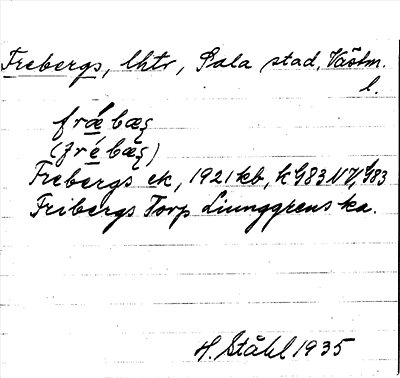 Frebergs, lhtr, Sala stad, Västm.
l.
fræ̀bæʂ
(frèbæʂ)
Frebergs ek, 1921 kb, k G83 NV, G83
Fribergs Torp Liunggrens ka.
H. Ståhl 1935